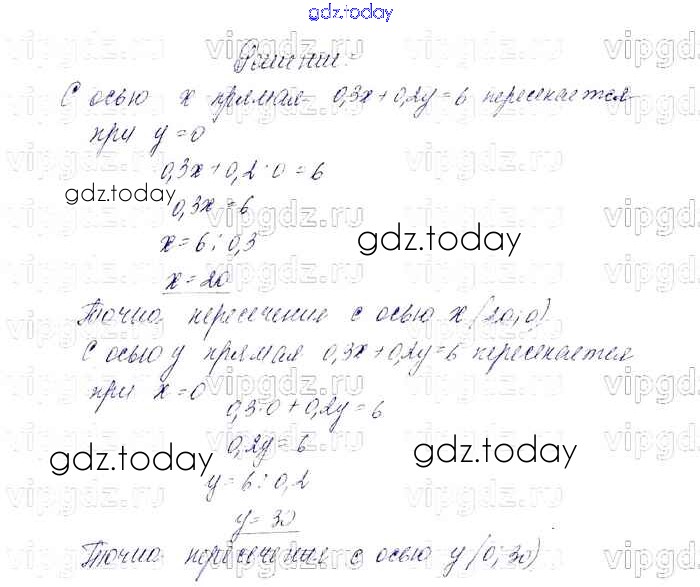 gdz.today
Решение:
С осью x прямая 0,3x+0,2y=6 пересекается
при y=0
0,3x+0,2·0=6
gdz.today
0,3x=6
x=6:0,3
gdz.today
x=20
Точка пересечения с осью x (20;0)
С осью y прямая 0,3x+0,2y=6 пересекается
при x=0
0,3·0+0,2y=6
0,2y=6
gdz.today
gdz.today
y=6:0,2
y=30
Точка пересечения с осью y (0;30)